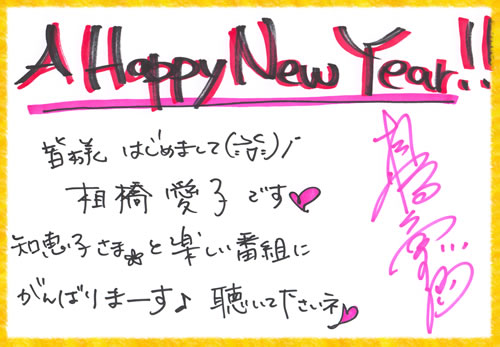 A Happy New Year!!
皆様 はじめまして(^o^)/
相橋愛子です♥
知恵子さまと楽しい番組に
がんばりまーす♪ 聴いて下さいネ♥